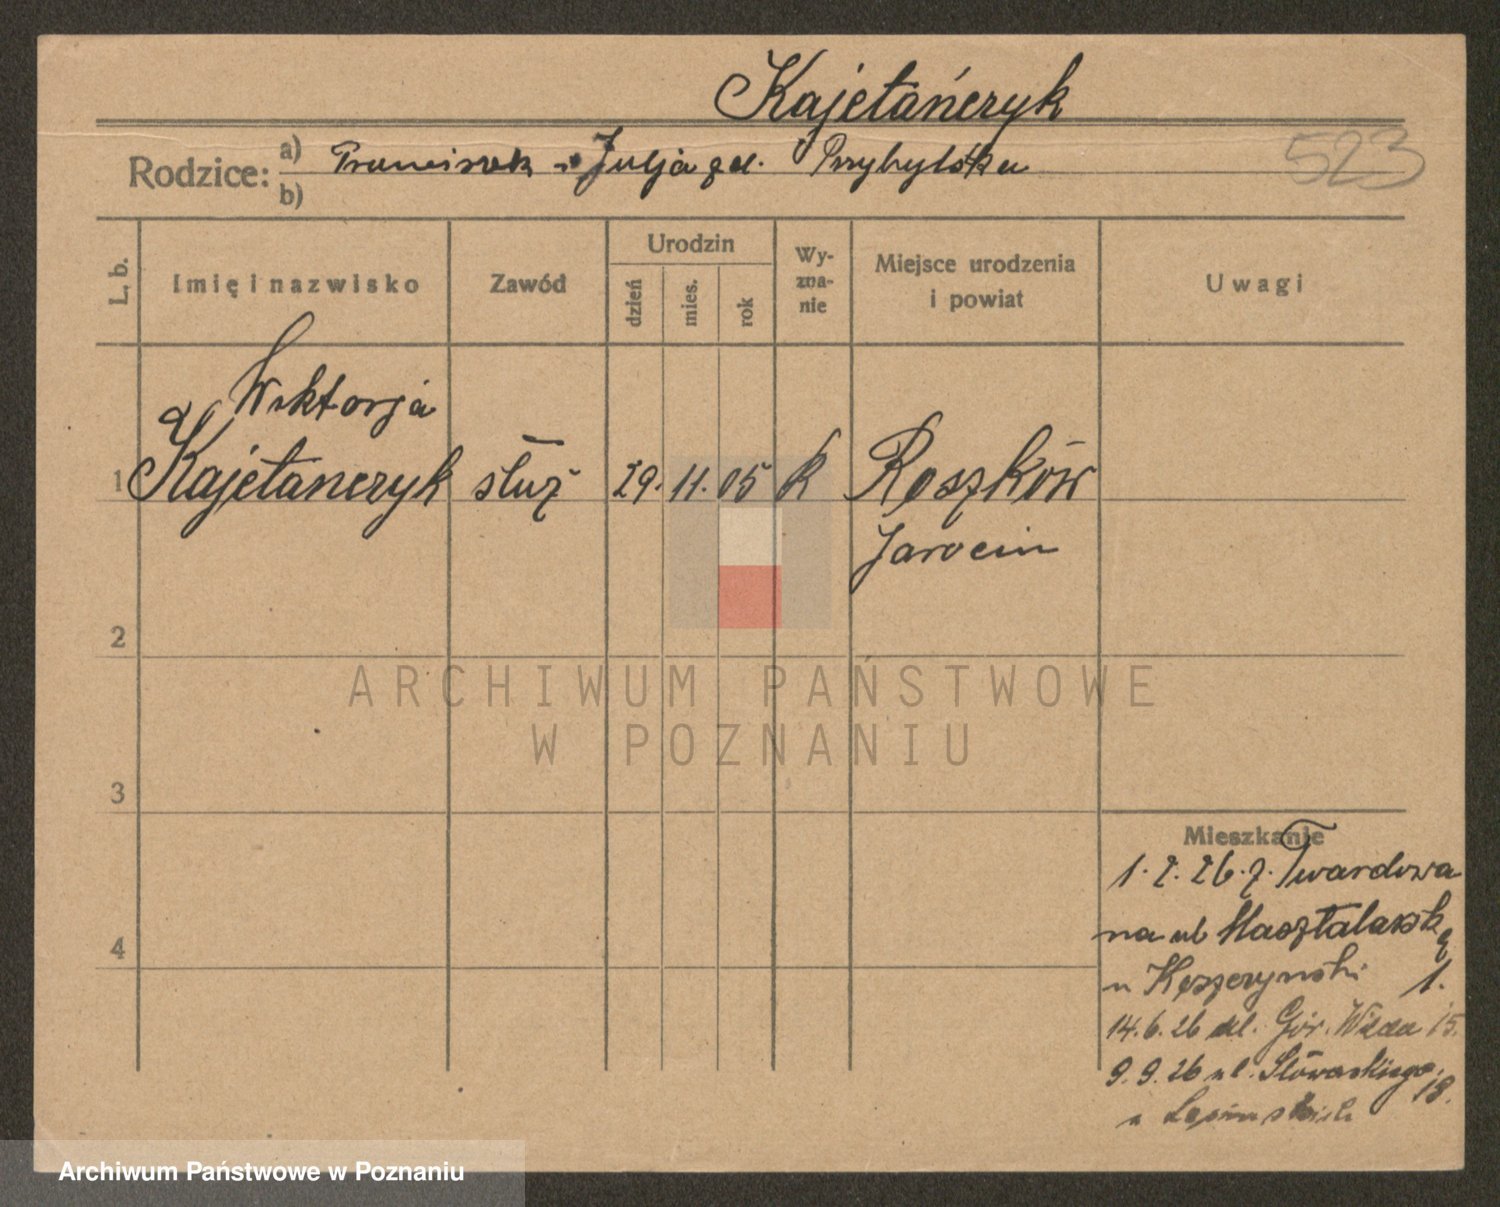 Kajetańczyk
523
Rodzice: a) Franciszek i Julja zd. Przybylska
b)
L. b. Imię i nazwisko Zawód Urodzin dzień mies. rok Wy-zna-nie Miejsce urodzenia i powiat Uwagi
Wiktorja
1 Kajetanczyk służ 29. 11. 05 k Roszków
Jarocin
2
ARCHIWUM PAŃSTWOWE
W POZNANIU
3
Mieszkanie
1. 2. 26. z. Twardowa
na ul Masztalarską
u Kęszczyński 1.
4
14. 6. 26 ul. Gór. Wilda 15.
9. 9. 26 ul. Słowackiego 18.
u
Archiwum Państwowe w Poznaniu